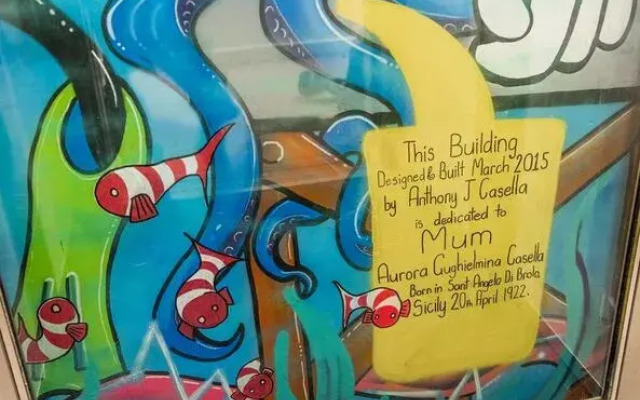 This Building
Designed & Built March 2015
by Anthony J Casella
is dedicated to
Mum
Aurora Gughielmina Casella
Born in Sant Angelo Di Brola
Sicily 20th April 1922.